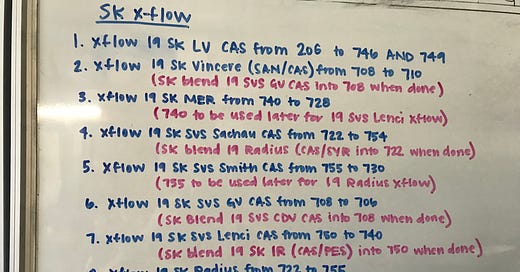 SK X-flow
1. xflow 19 SK LV CAS from 206 to 746 AND 749
2. xflow 19 SK Vincere (SAN/CAS) from 708 to 710
(SK blend 19 SVS GV CAS into 708 when done)
3. xflow 19 SK MER from 740 to 728
(740 to be used later for 19 SVS Lenci xflow)
4. xflow 19 SK SVS Sachau CAS from 722 to 754
(SK blend 19 Radius (CAS/SYR into 722 when done)
5. xflow 19 SK SVS Smith CAS from 755 to 730
(755 to be used later for 19 Radius xflow)
6. xflow 19 SK SVS GV CAS from 708 to 706
(SK Blend 19 SVS CDV CAS into 708 when done)
7. xflow 19 SK SVS Lenci CAS from 750 to 740
(SK blend 19 SK IR (CAS/PES) into 750 when done)
xflow 19 SK Radius from 722 to 755